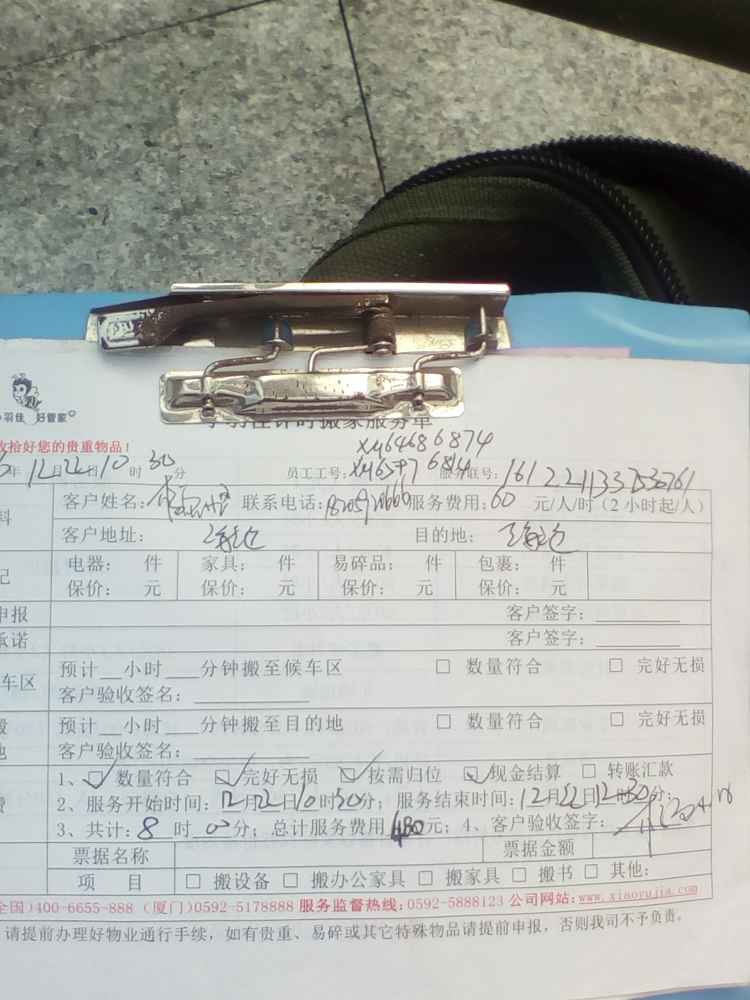 小羽佳 好管家
收拾好您的贵重物品！
小羽佳计时搬家服务单
XM64686874
年12月22日10时30分 员工工号: 服务联号:
料 客户姓名: 联系电话: 服务费用:60 元/人/时（2小时起/人）
客户地址: 目的地:
记 电器: 件 家具: 件 易碎品: 件 包裹: 件
保价: 元 保价: 元 保价: 元 保价: 元
申报 客户签字:
承诺 客户签字:
车区 预计__小时___分钟搬至候车区 □ 数量符合 □ 完好无损
客户验收签名:
预计__小时 分钟搬至目的地 □ 数量符合 □ 完好无损
地 客户验收签名:
费 1、☑数量符合 ☑完好无损 ☑按需归位 ☑现金结算 □ 转账汇款
2、服务开始时间:12月22日10时30分; 服务结束时间:12月22日12时30分;
3、共计:8时00分; 总计服务费用480元; 4、客户验收签字:
票据名称 票据金额
项 目 □ 搬设备 □ 搬办公家具 □ 搬家具 □ 搬书 □ 其他:
全国)400-6655-888 (厦门)0592-5178888 服务监督热线:0592-5888123 公司网站:www.xiaoyujia.com
请提前办理好物业通行手续，如有贵重、易碎或其它特殊物品请提前申报，否则我司不予负责。